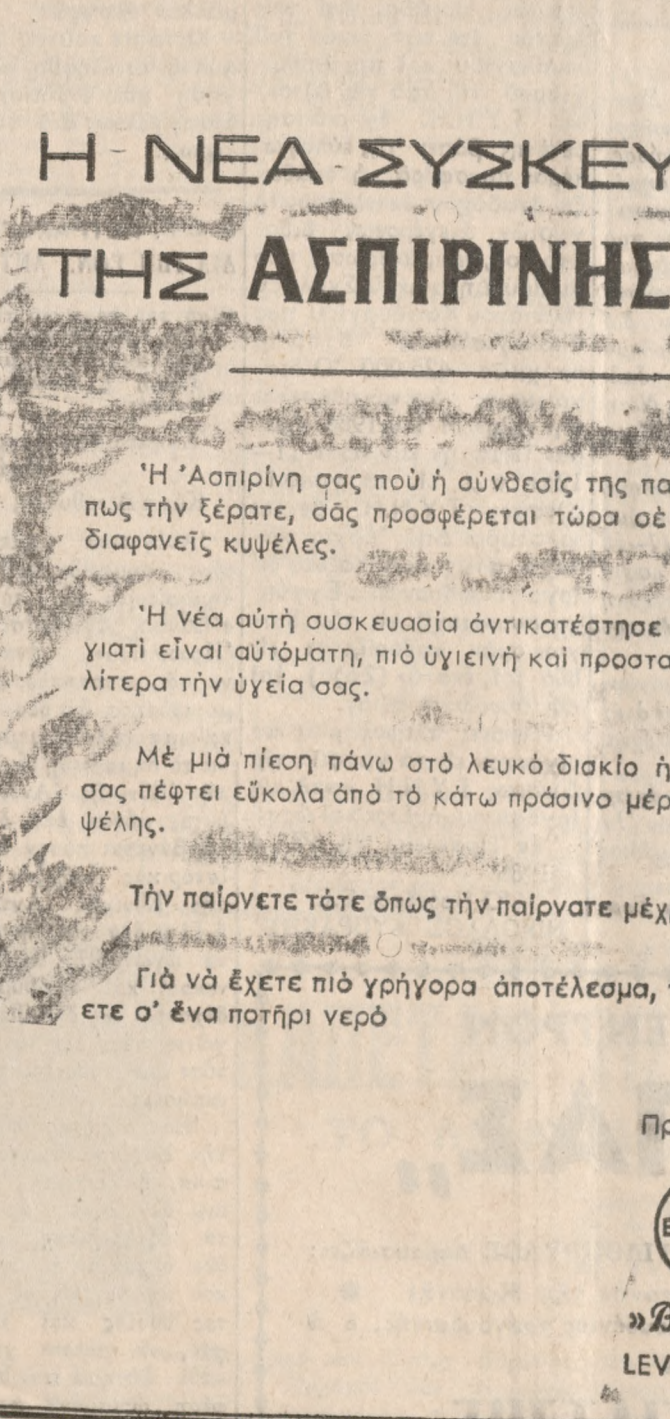 Η ΝΕΑ ΣΥΣΚΕΥ
ΤΗΣ ΑΣΠΙΡΙΝΗΣ
Ἡ Ἀσπιρίνη σας ποὺ ἡ σύνθεσίς της πα
πως τὴν ξέρατε, σᾶς προσφέρεται τώρα σὲ
διαφανεῖς κυψέλες.
Ἡ νέα αὐτὴ συσκευασία ἀντικατέστησε
γιατὶ εἶναι αὐτόματη, πιὸ ὑγιεινὴ καὶ προστα
λίτερα τὴν ὑγεία σας.
Μὲ μιὰ πίεση πάνω στὸ λευκὸ δισκίο ἡ
σας πέφτει εὔκολα ἀπὸ τὸ κάτω πράσινο μέρ
ψέλης.
Τὴν παίρνετε τότε ὅπως τὴν παίρνατε μέχ
Γιὰ νὰ ἔχετε πιὸ γρήγορα ἀποτέλεσμα,
ετε σ' ἕνα ποτῆρι νερὸ
Πρ
»B
LEV